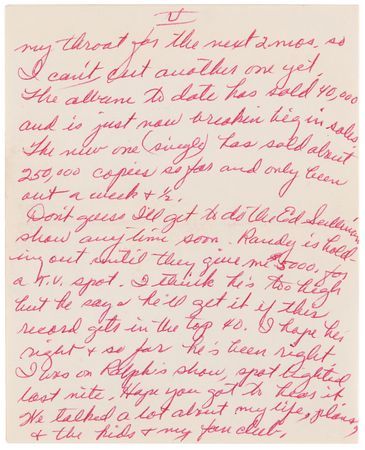 V
my throat for the next 2 mos. so
I can't cut another one yet.
The album to date has sold 40,000
and is just now breakin big in sales.
The new one (single) has sold about
250,000 copies so far and only been
out a week + ½.
Don't guess I'll get to do the Ed Sullivan
show any time soon. Randy is hold-
ing out until they give me $5000. for
a T.V. spot. I think he's too high
but he says he'll get it if this
record gets in the top 40. I hope he's
right + so far he's been right
I was on Ralph's show, spot lighted
last nite. Hope you got to hear it
We talked a lot about my life, plans,
+ the kids + my fan club.